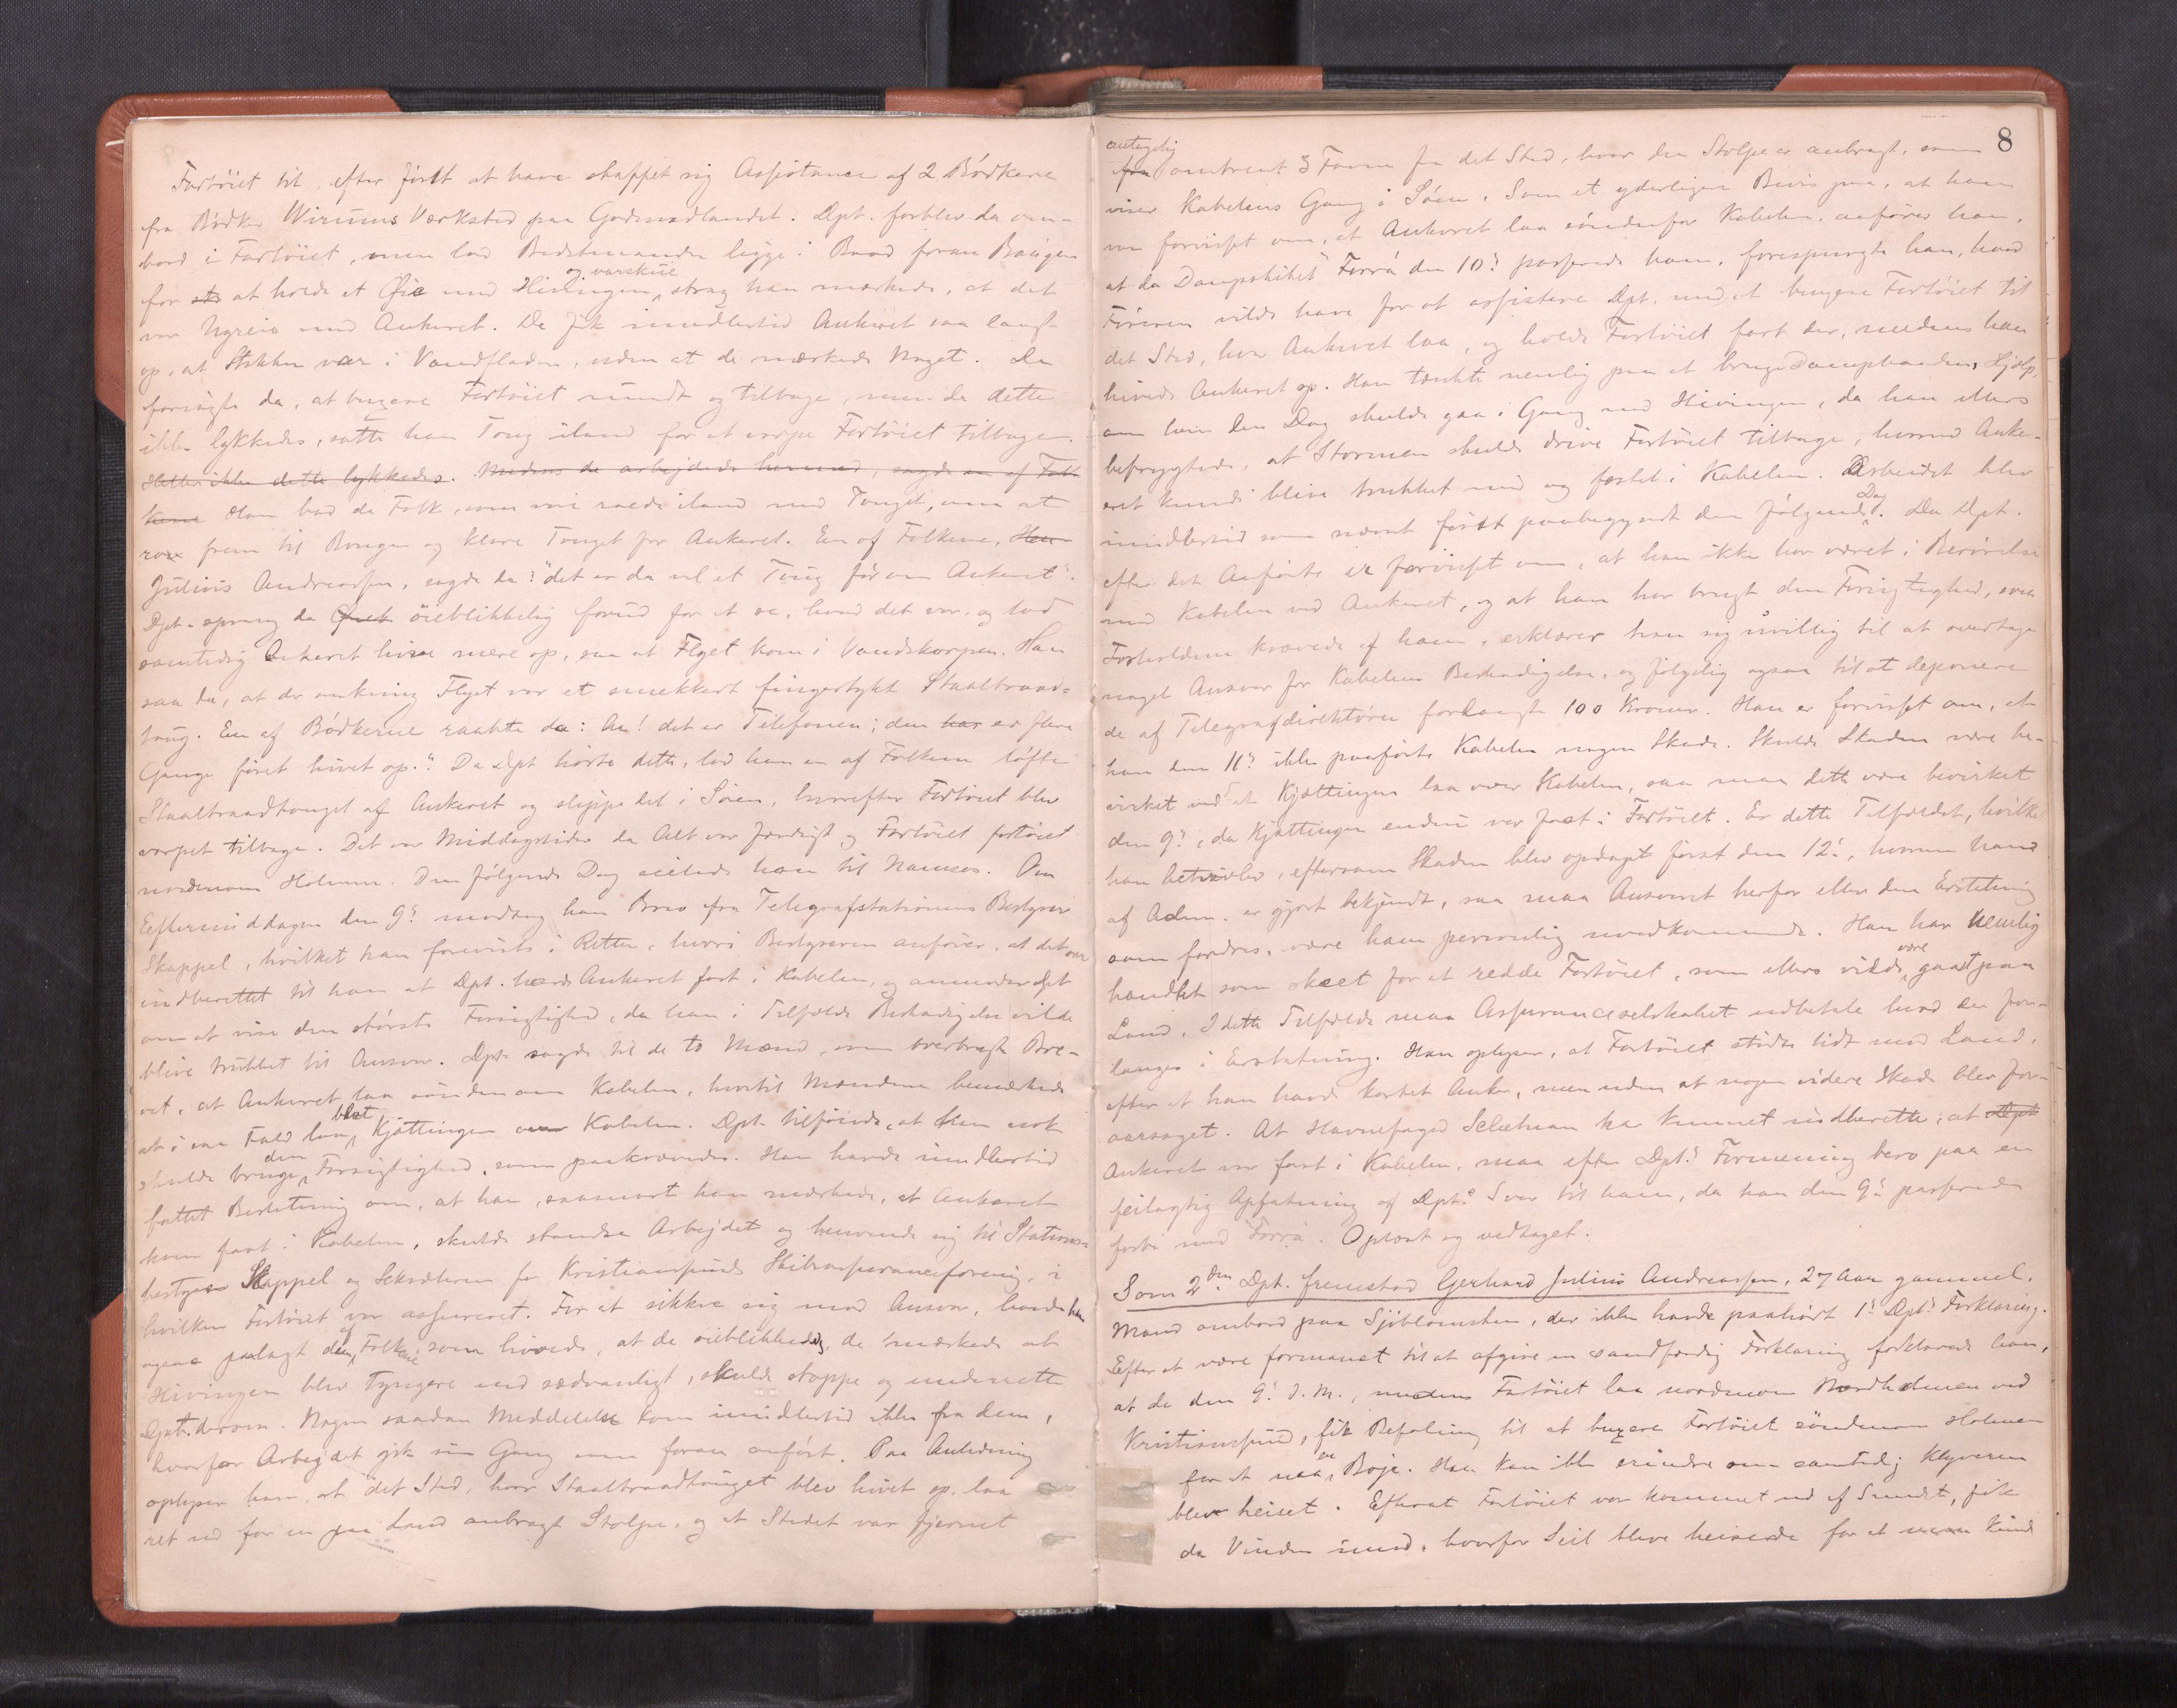 Fartöiet til, efter först at have skaffet sig Assistance af 2 Bödkere
fra Bödker Wirums Værksted paa Gomalandet. Dpt. forblev da om-
bord i Fartöiet, men lod Bedstmanden ligge i Baad foran Baugen
for at holde et Öie med Hivingen og varskue, strax han mærkede, at det
var Ugreie med Ankeret. De fik imidlertid Ankeret saa langt
op, at Stokken var i Vandfladen, uden at de mærkede Noget. De
forsögte da, at buxere Fartöiet rundt og tilbage, men da dette
ikke lykkedes, satte han Toug iland for at varpe Fartöiet tilbage.
Heller ikke dette lykkedes. Medens de arbejdede hermed, sagde en af Folk-
kene Han bad de Folk, som vare roede iland med Touget, om at
roe frem til Bougen og klare Touget for Ankeret. En af Folkene,
Julius Andreassen, sagde da: "det er da vel et Toug för om Ankeret".
Dpt. sprang da öieblikkelig forud for at se, hvad det var, og lod
samtidig Ankeret hive mere op, saa at Flyet kom i Vandskorpen. Han
saa da, at der omkring Flyet var et smekkert fingertykt Staaltraad-
toug. En af Bödkerne raabte da: Aa! det er Telefonen; den har er flere
Gange föret hivet op." Da Dpt hörte dette, lod han en af Folkene löfte
Staaltraadtouget af Ankeret og slippe det i Söen, hvorefter Fartöiet blev
varpet tilbage. Det var Middagstider da Alt var færdigt og Fartöiet fortöiet
nordenom Holmen. Den fölgende Dag seilede han til Namsos. Om
Eftermiddagen den 9de modtog han Brev fra Telegrafstationens Bestyrer
Skappel, hvilket han foreviste i Retten, hvori Bestyreren anförer, at det var
indberettet til ham at Dpt. havde Ankeret fast i Kabelen, og anmoder Dpt
om at vise den störste Forsigtighed, da han i Tilfælde Beskadigelse vilde
blive trukket til Ansvar. Dpt. sagde til de to Mænd, som overbragte Bre-
vet, at Ankeret laa söndenom Kabelen, hvortil Mændene bemærkede
at i saa Fald laa blot Kjættingen over Kabelen. Dpt. tilföiede, at han nok
skulde bruge den Forsigtighed, som paakrævedes. Han havde imidlertid
fattet Beslutning om, at han, saasnart han mærkede, at Ankeret
kom fast i Kabelen, skulde standse Arbejdet og henvende sig til Stations-
bestyrer Skappel og Sekretæren for Kristianssunds Skibsassuranceforening, i
hvilken Fartöiet var assureret. For at sikkre sig mod Ansvar, havde han
ogsaa paalagt dem af Folkene, som hivede, at de öieblikkelig, de mærkede at
Hivingen blev tyngere end sædvanligt, skulde stoppe og underrette
Dpt. derom. Nogen saadan Meddelelse kom imidlertid ikke fra dem,
hvorfor Arbejdet gik sin Gang som foran anfört. Paa Anledning
oplyser han, at det Sted, hvor Staaltraadtouget blev hivet op, laa
ret ud for en paa Land anbragt Stolpe, og at Stedet var fjernet
8
antagelig
fra omtrent 3 Favne fra det Sted, hvor den Stolpe er anbragt, som
viser Kabelens Gang i Söen. Som et yderligere Bevis paa, at han
var forvisset om, at Ankeret laa söndenfor Kabelen, anförer han,
at da Dampskibet "Forrá" den 10de passerede ham, forespurgte han, hvad
Föreren vilde have for at assistere Dpt. med at buxere Fartöiet til
det Sted, hvor Ankeret laa, og holde Fartöiet fast der, medens han
hivede Ankeret op. Han tænkte nemlig paa at bruge Dampbaadens Hjælp,
om han den Dag skulde gaa i Gang med Hivingen, da han ellers
befrygtede, at Stormen skulde drive Fartöiet tilbage, hvorved Anke-
ret kunde blive trukket med og fæstet i Kabelen. Arbeidet blev
imidlertid som nævnt först paabegyndt den fölgende Dag. Da Dpt.
efter det Anförte er forvisset om, at han ikke har været i Berörelse
med Kabelen ved Ankeret, og at han har brugt den Forsigtighed, som
Forholdene krævede af ham, erklærer han sig uvillig til at overtage
noget Ansvar for Kabelens Beskadigelse, og fölgelig ogsaa til at deponere
de af Telegrafdirektören forlangte 100 Kroner. Han er forvisset om, at
han den 11te ikke paaförte Kabelen nogen Skade. Skulde Skaden være be-
virket ved at Kjættingen laa over Kabelen, saa maa dette være bevirket
den 9de, da Kjættingen endnu var fast i Fartöiet. Er dette Tilfældet, hvilket
han betvivler, eftersom Skaden blev opdaget först den 12te, hvorom han
af Adm. er gjort bekjendt, saa maa Ansvaret herfor eller den Erstatning
som fordres, være ham personlig uvedkommende. Han har nemlig
handlet som skeet for at redde Fartöiet, som ellers vilde være gaaet paa
Land. I dette Tilfælde maa Assuranceselskabet udbetale hvad der for-
langes i Erstatning. Han oplyser, at Fartöiet stödte lidt mod Land,
efter at han havde kastet Anker, men uden at nogen videre Skade blev for-
aarsaget. At Havnefoged Schetnan har kunnet indberette, at Dpt
Ankeret var fast i Kabelen, maa efter Dpts Formening bero paa en
feilagtig Opfatning af Dpts Svar til ham, da han den 9de passerede
forbi med "Forrá". Oplæst og vedtaget.
Som 2den Dpt. fremstod Gerhard Julius Andreassen, 27 Aar gammel,
Mand ombord paa Sjöblomsten, der ikke havde paahört 1ste Dpts Forklaring.
Efter at være formanet til at afgive en sandfærdig Forklaring forklarede han,
at da den 9de d. M., medens Fartöiet laa nordenom Nordholmen ved
Kristianssund, fik Befaling til at buxere Fartöiet söndenom Holmen
for at naa en Böje. Han kan ikke erindre om samtidig Klyveren
blev heiset. Efterat Fartöiet var kommet ud af Sundet, fik
de Vinden imod, hvorfor Seil bleve heisede for at man kunde